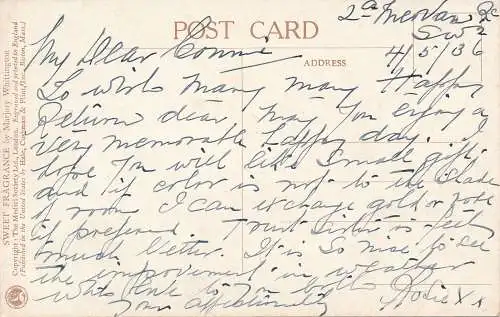 POST CARD
ADDRESS
SW2
4/5/36
My Dear Connie
So wish many many Happy
Return dear may you enjoy a
very memorable happy day. I
hope you will like small gift,
and if color is not to the shade
of room I can exchange gold or rose
if preferred. Trust Sister is feeling
much better. It is so nice to see
the improvement in weather
love to you both
Your affectionately Rosie X X
SWEET FRAGRANCE by Marjory Whittington
Copyright: The Medici Society Ltd., London. Engraved and printed in England
(Published in the United States by Hale, Cushman & Flint, Inc., Boston, Mass.)